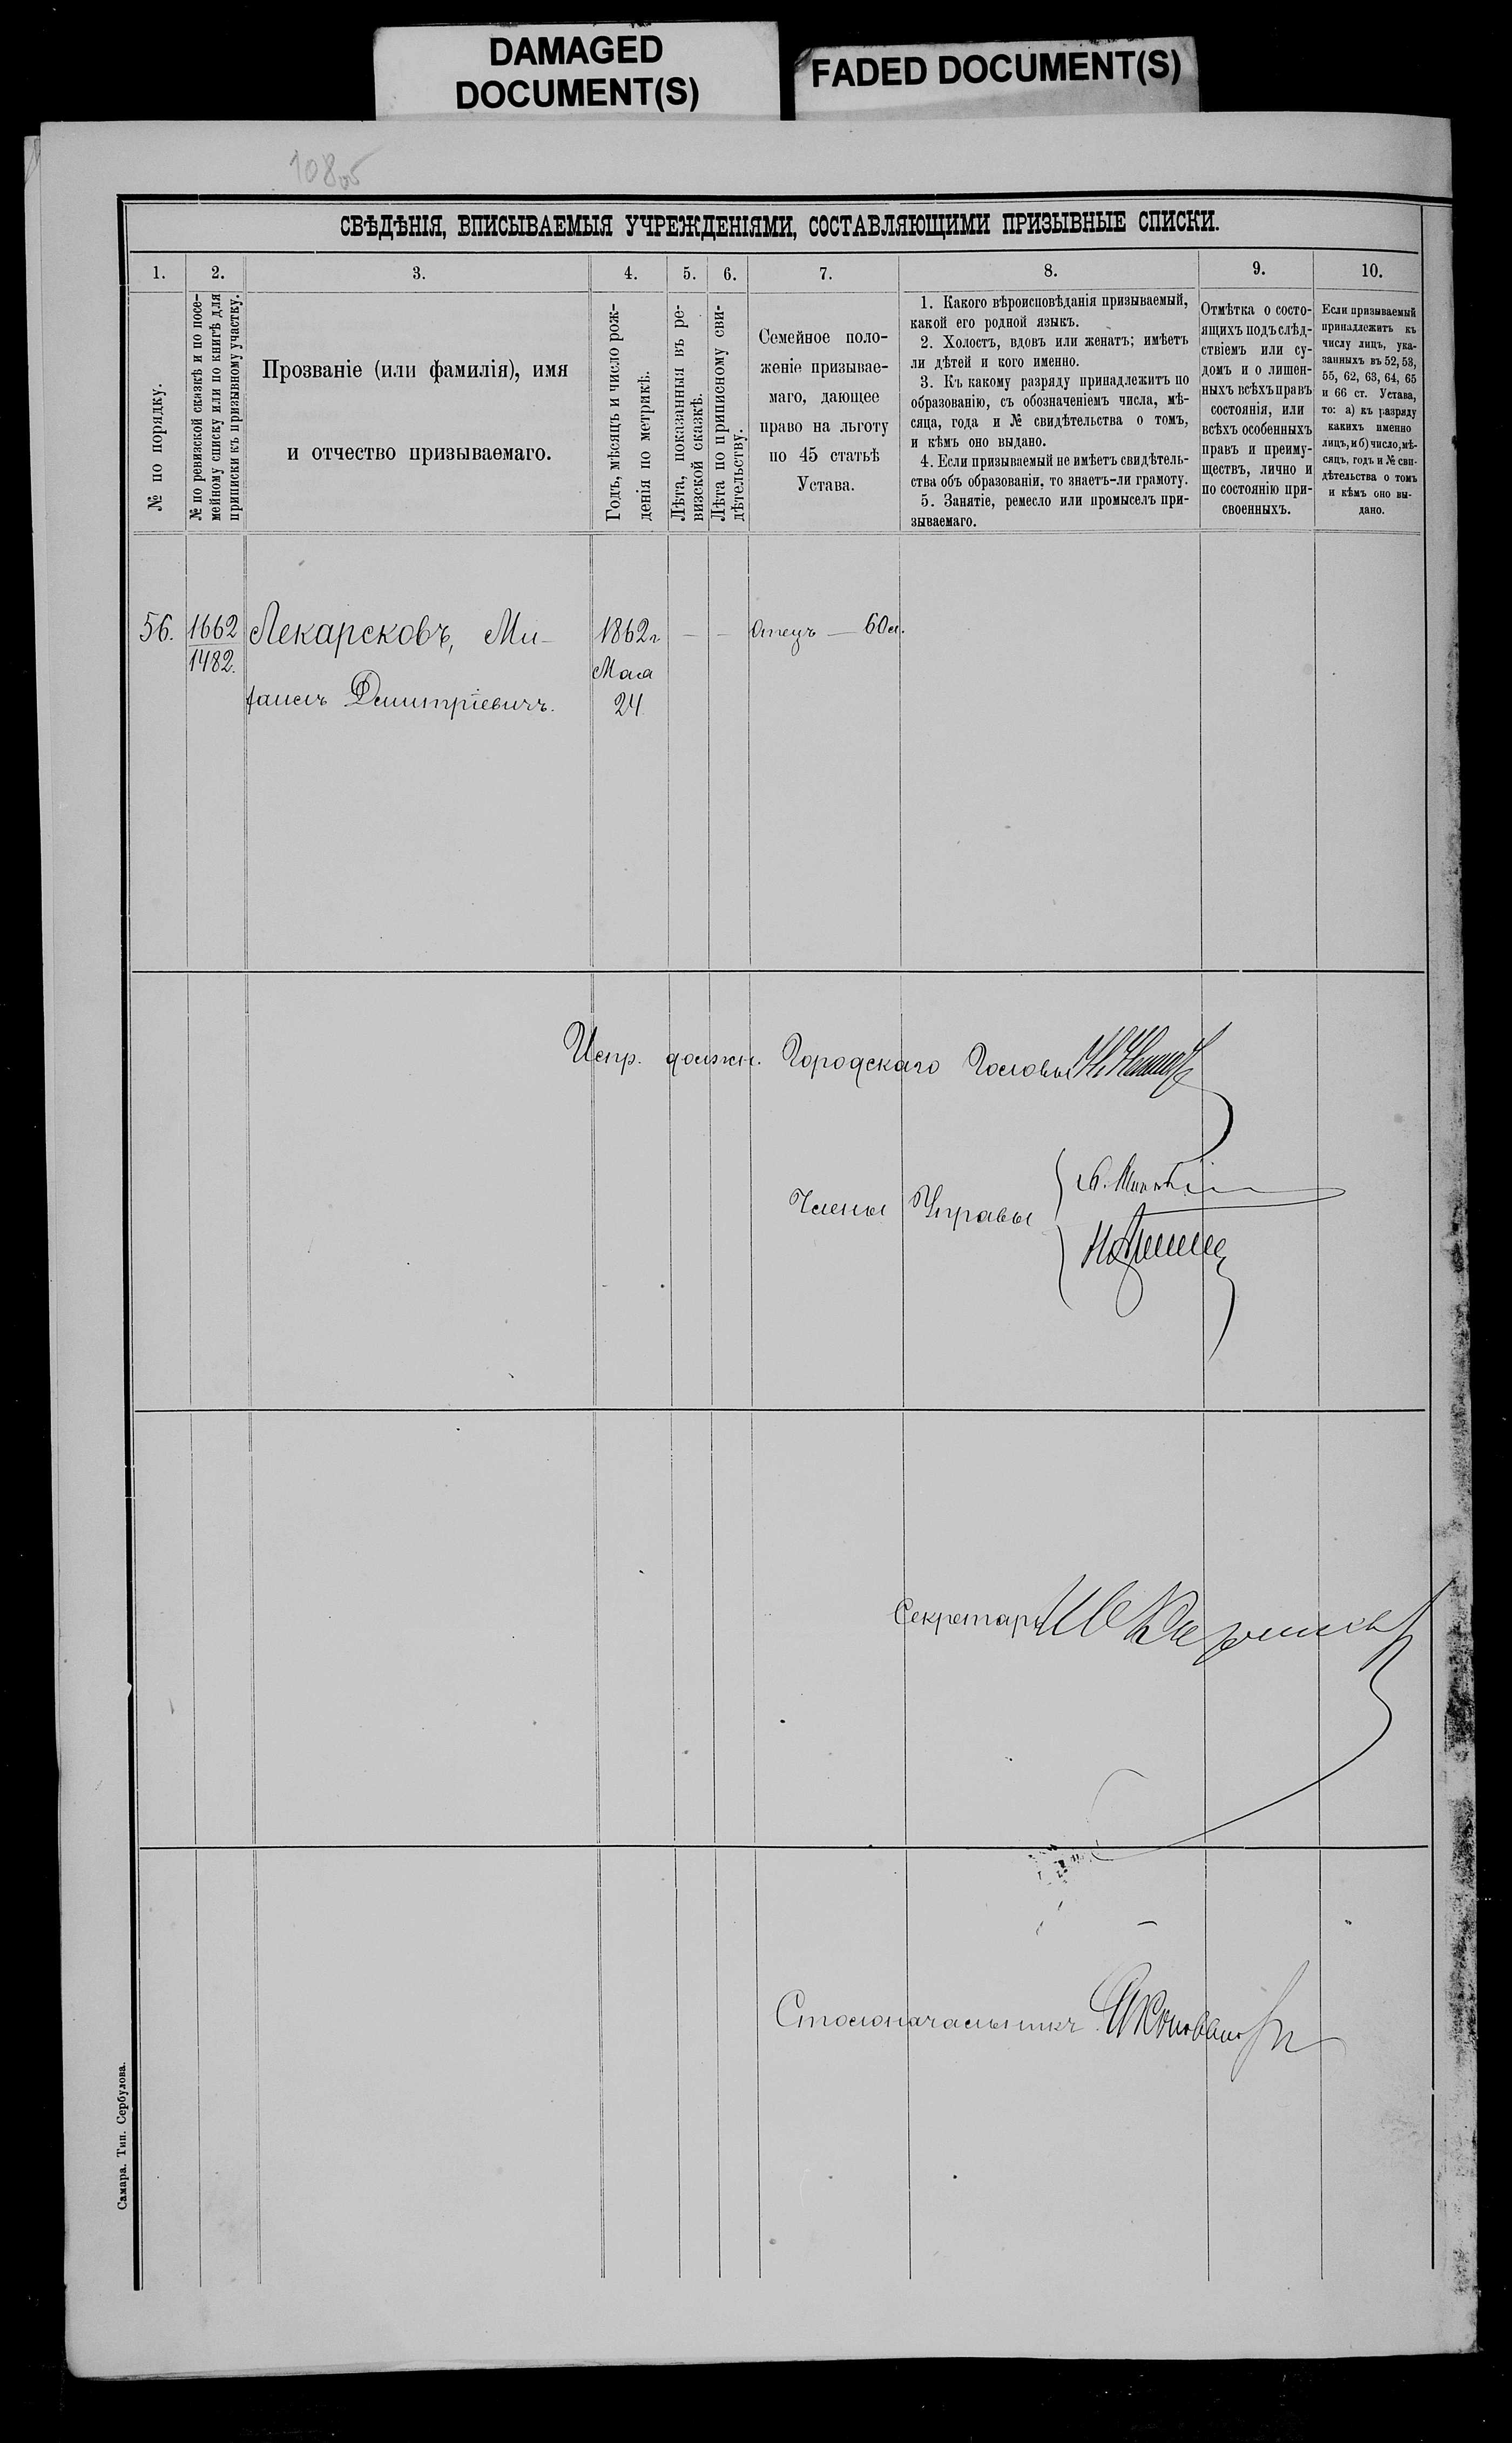 DAMAGED
DOCUMENT(S)
FADED DOCUMENT(S)
СВѢДѢНІЯ, ВПИСЫВАЕМЫЯ УЧРЕЖДЕНІЯМИ, СОСТАВЛЯЮЩИМИ ПРИЗЫВНЫЕ СПИСКИ.
1.
2.
3.
4.
5.
6.
7.
8.
9.
10.
№ по порядку.
№ по ревизской сказкѣ и по посе-
мейному списку или по книгѣ для
приписки къ призывному участку.
Прозваніе (или фамилія), имя
и отчество призываемаго.
Годъ, мѣсяцъ и число рож-
денія по метрикѣ.
Лѣта, показанныя въ ре-
визской сказкѣ.
Лѣта по приписному сви-
дѣтельству.
Семейное поло-
женіе призывае-
маго, дающее
право на льготу
по 45 статьѣ
Устава.
1. Какого вѣроисповѣданія призываемый,
какой его родной языкъ.
2. Холостъ, вдовъ или женатъ; имѣетъ
ли дѣтей и кого именно.
3. Къ какому разряду принадлежитъ по
образованію, съ обозначеніемъ числа, мѣ-
сяца, года и № свидѣтельства о томъ,
и кѣмъ оно выдано.
4. Если призываемый не имѣетъ свидѣтель-
ства объ образованіи, то знаетъ-ли грамоту.
5. Занятіе, ремесло или промыселъ при-
зываемаго.
Отмѣтка о состо-
ящихъ подъ слѣд-
ствіемъ или су-
домъ и о лишен-
ныхъ всѣхъ правъ
состоянія, или
всѣхъ особенныхъ
правъ и преиму-
ществъ, лично и
по состоянію при-
своенныхъ.
Если призываемый
принадлежитъ къ
числу лицъ, ука-
занныхъ въ 52, 53,
55, 62, 63, 64, 65
и 66 ст. Устава,
то: а) къ разряду
какихъ именно
лицъ, и б) число, мѣ-
сяцъ, годъ и № сви-
дѣтельства о томъ
и кѣмъ оно вы-
дано.
56.
1662
1482.
Лекарсковъ, Ми-
хаилъ Дмитріевичъ.
1862 г
Мая
24
—
—
Отецъ — 60 л.
Испр. должн. Городскаго Головы
Члены Управы
Секретарь
Столоначальникъ
Самара. Тип. Сербулова.